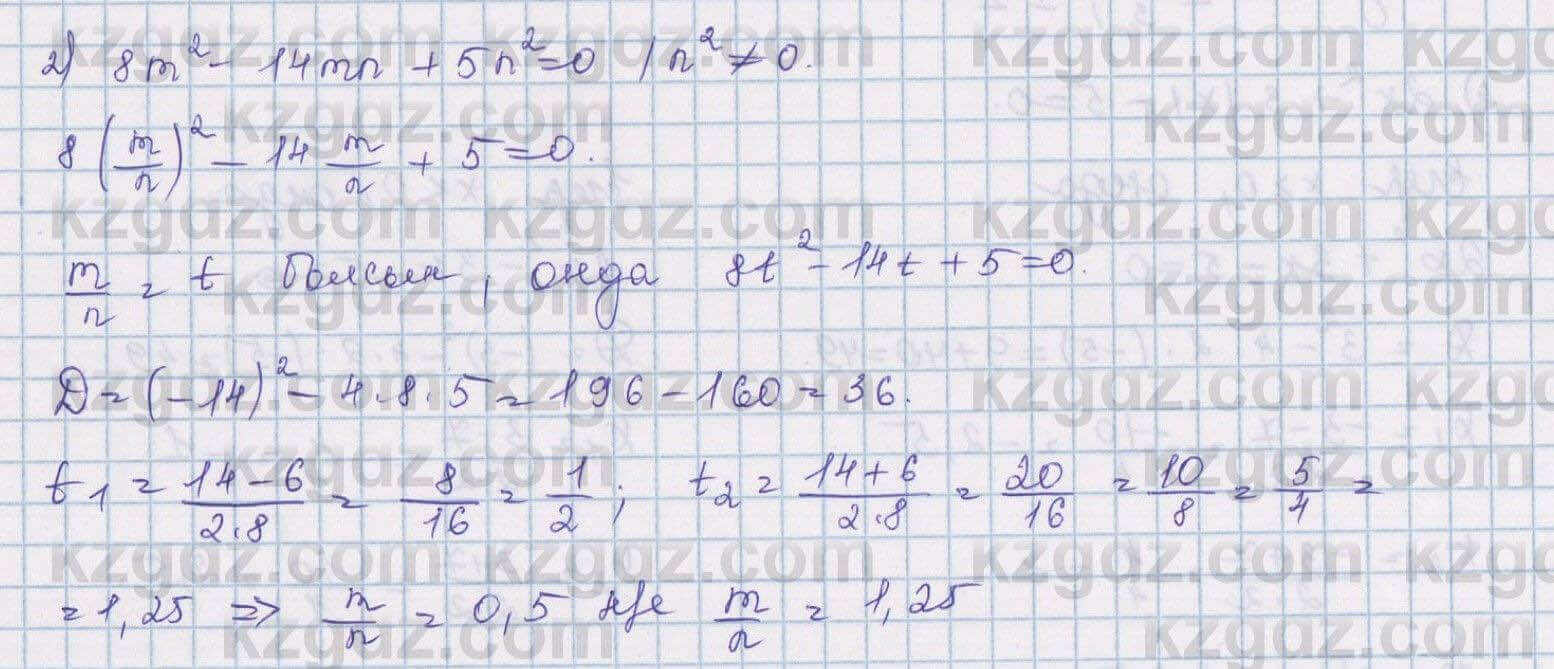 2) 8m² - 14mn + 5n² = 0 | n² ≠ 0.
8(m/n)² - 14 m/n + 5 = 0.
m/n = t болсын, онда 8t² - 14t + 5 = 0.
D = (-14)² - 4·8·5 = 196 - 160 = 36.
t₁ = (14-6)/(2·8) = 8/16 = 1/2; t₂ = (14+6)/(2·8) = 20/16 = 10/8 = 5/4 =
= 1,25 ⇒ m/n = 0,5 не m/n = 1,25
kzgdz.com